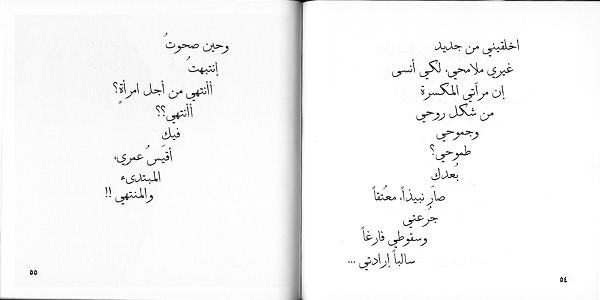 اخلقيني من جديد
غيري ملامحي، لكي أنسى
إن مرآتي المكسرة
من شكل روحي
وجموحي
طموحي؟
بُعدك
صارَ نبيذاً، معتّقاً
جُرعتي
وسقوطي فارغاً
سالباً إرادتي ...
٥٤
وحين صحوتُ
إنتبهتُ
أأنتهي من أجل امرأةٍ؟
أأنتهي؟؟
فيكِ
أقيَسُ عمري،
المبتدىء
والمنتهي !!
٥٥